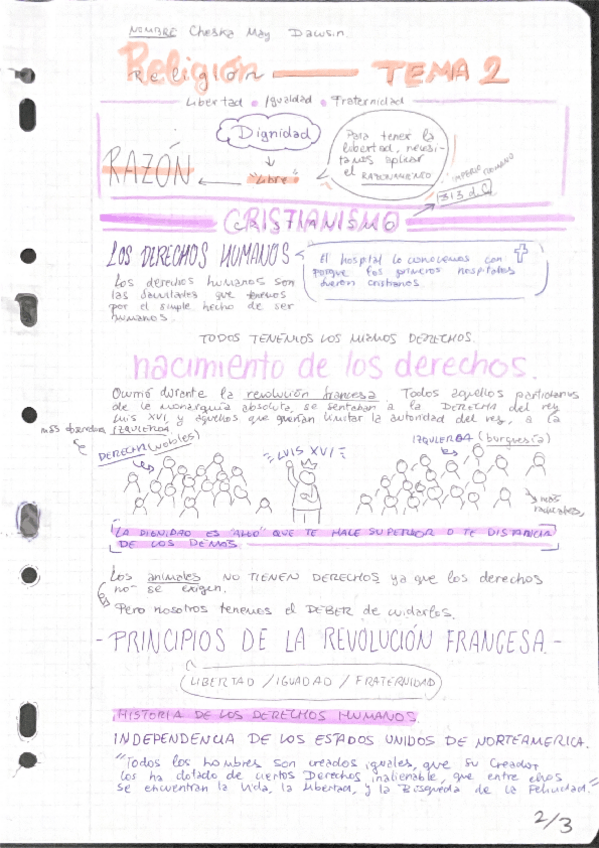 NOMBRE Cheska May Dawsin.
Religión — TEMA 2
Libertad • Igualdad • Fraternidad
Dignidad
Para tener la
libertad, necesi-
tamos aplicar
el RAZONAMIENTO
RAZÓN
"Libre"
IMPERIO ROMANO
313 d.C
CRISTIANISMO
LOS DERECHOS HUMANOS
El hospital lo conocemos con ✝
porque los primeros hospitales
fueron cristianos
Los derechos humanos son
las facultades que tenemos
por el simple hecho de ser
humanos.
TODOS TENEMOS LOS MISMOS DERECHOS.
nacimiento de los derechos.
Ocurrió durante la revolución francesa. Todos aquellos partidarios
de le monarquía absoluta, se sentaban a la DERECHA del rey
Luis XVI y aquellos que querían limitar la autoridad del rey, a la
IZQUIERDA
DERECHA (nobles)
LUIS XVI
IZQUIERDA (burguesía)
más radicales,
LA DIGNIDAD ES "ALGO" QUE TE HACE SUPERIOR O TE DISTANCIA
DE LOS DEMÁS.
Los animales NO TIENEN DERECHOS ya que los derechos
no se exigen.
Pero nosotros tenemos el DEBER de cuidarlos.
- PRINCIPIOS DE LA REVOLUCIÓN FRANCESA. -
LIBERTAD / IGUADAD / FRATERNIDAD
HISTORIA DE LOS DERECHOS HUMANOS.
INDEPENDENCIA DE LOS ESTADOS UNIDOS DE NORTEAMERICA.
"Todos los hombres son creados iguales, que su Creador
los ha dotado de ciertos Derechos inalienable, que entre ellos
se encuentran la Vida, la libertad, y la Búsqueda de la Felicidad."
2/3